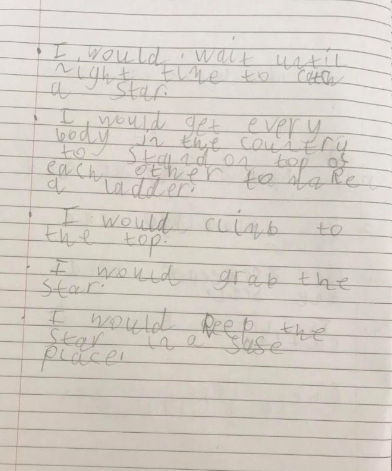 • I would wait until
night time to catch
a star.
• I would get every
body in the country
to stand on top of
each other to make
a ladder.
• I would climb to
the top.
• I would grab the
star.
• I would keep the
star in a safe
place.